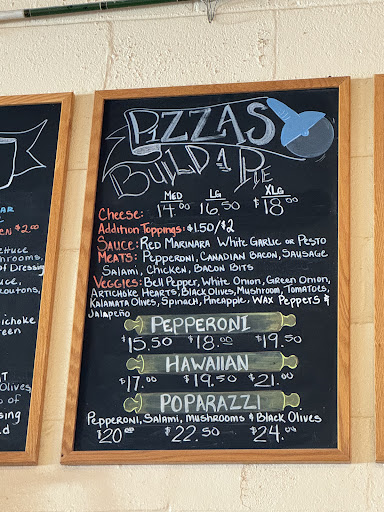 PIZZAS
BUILD A PIE
MED LG XLG
Cheese: 14.00 16.50 $18.00
Addition Toppings: $1.50/$2
SAUCE: RED MARINARA WHITE GARLIC OR PESTO
MEATS: PEPPERONI, CANADIAN BACON, SAUSAGE
SALAMI, CHICKEN, BACON BITS
VEGGIES: BELL PEPPER, WHITE ONION, GREEN ONION,
ARTICHOKE HEARTS, BLACK OLIVES, MUSHROOM, TOMATOES,
KALAMATA OLIVES, SPINACH, PINEAPPLE, WAX PEPPERS &
JALAPEÑO
PEPPERONI
$15.50 $18.00 $19.50
HAWAIIAN
$17.00 $19.50 $21.00
POPARAZZI
PEPPERONI, SALAMI, MUSHROOMS & BLACK OLIVES
$20.00 $22.50 $24.00
AR
EN $2.00
ETTUCE
HROOMS,
OF DRESSING
UCE,
ROUTONS,
TICHOKE
REEN
AT
OLIVES
OF
SING
ED